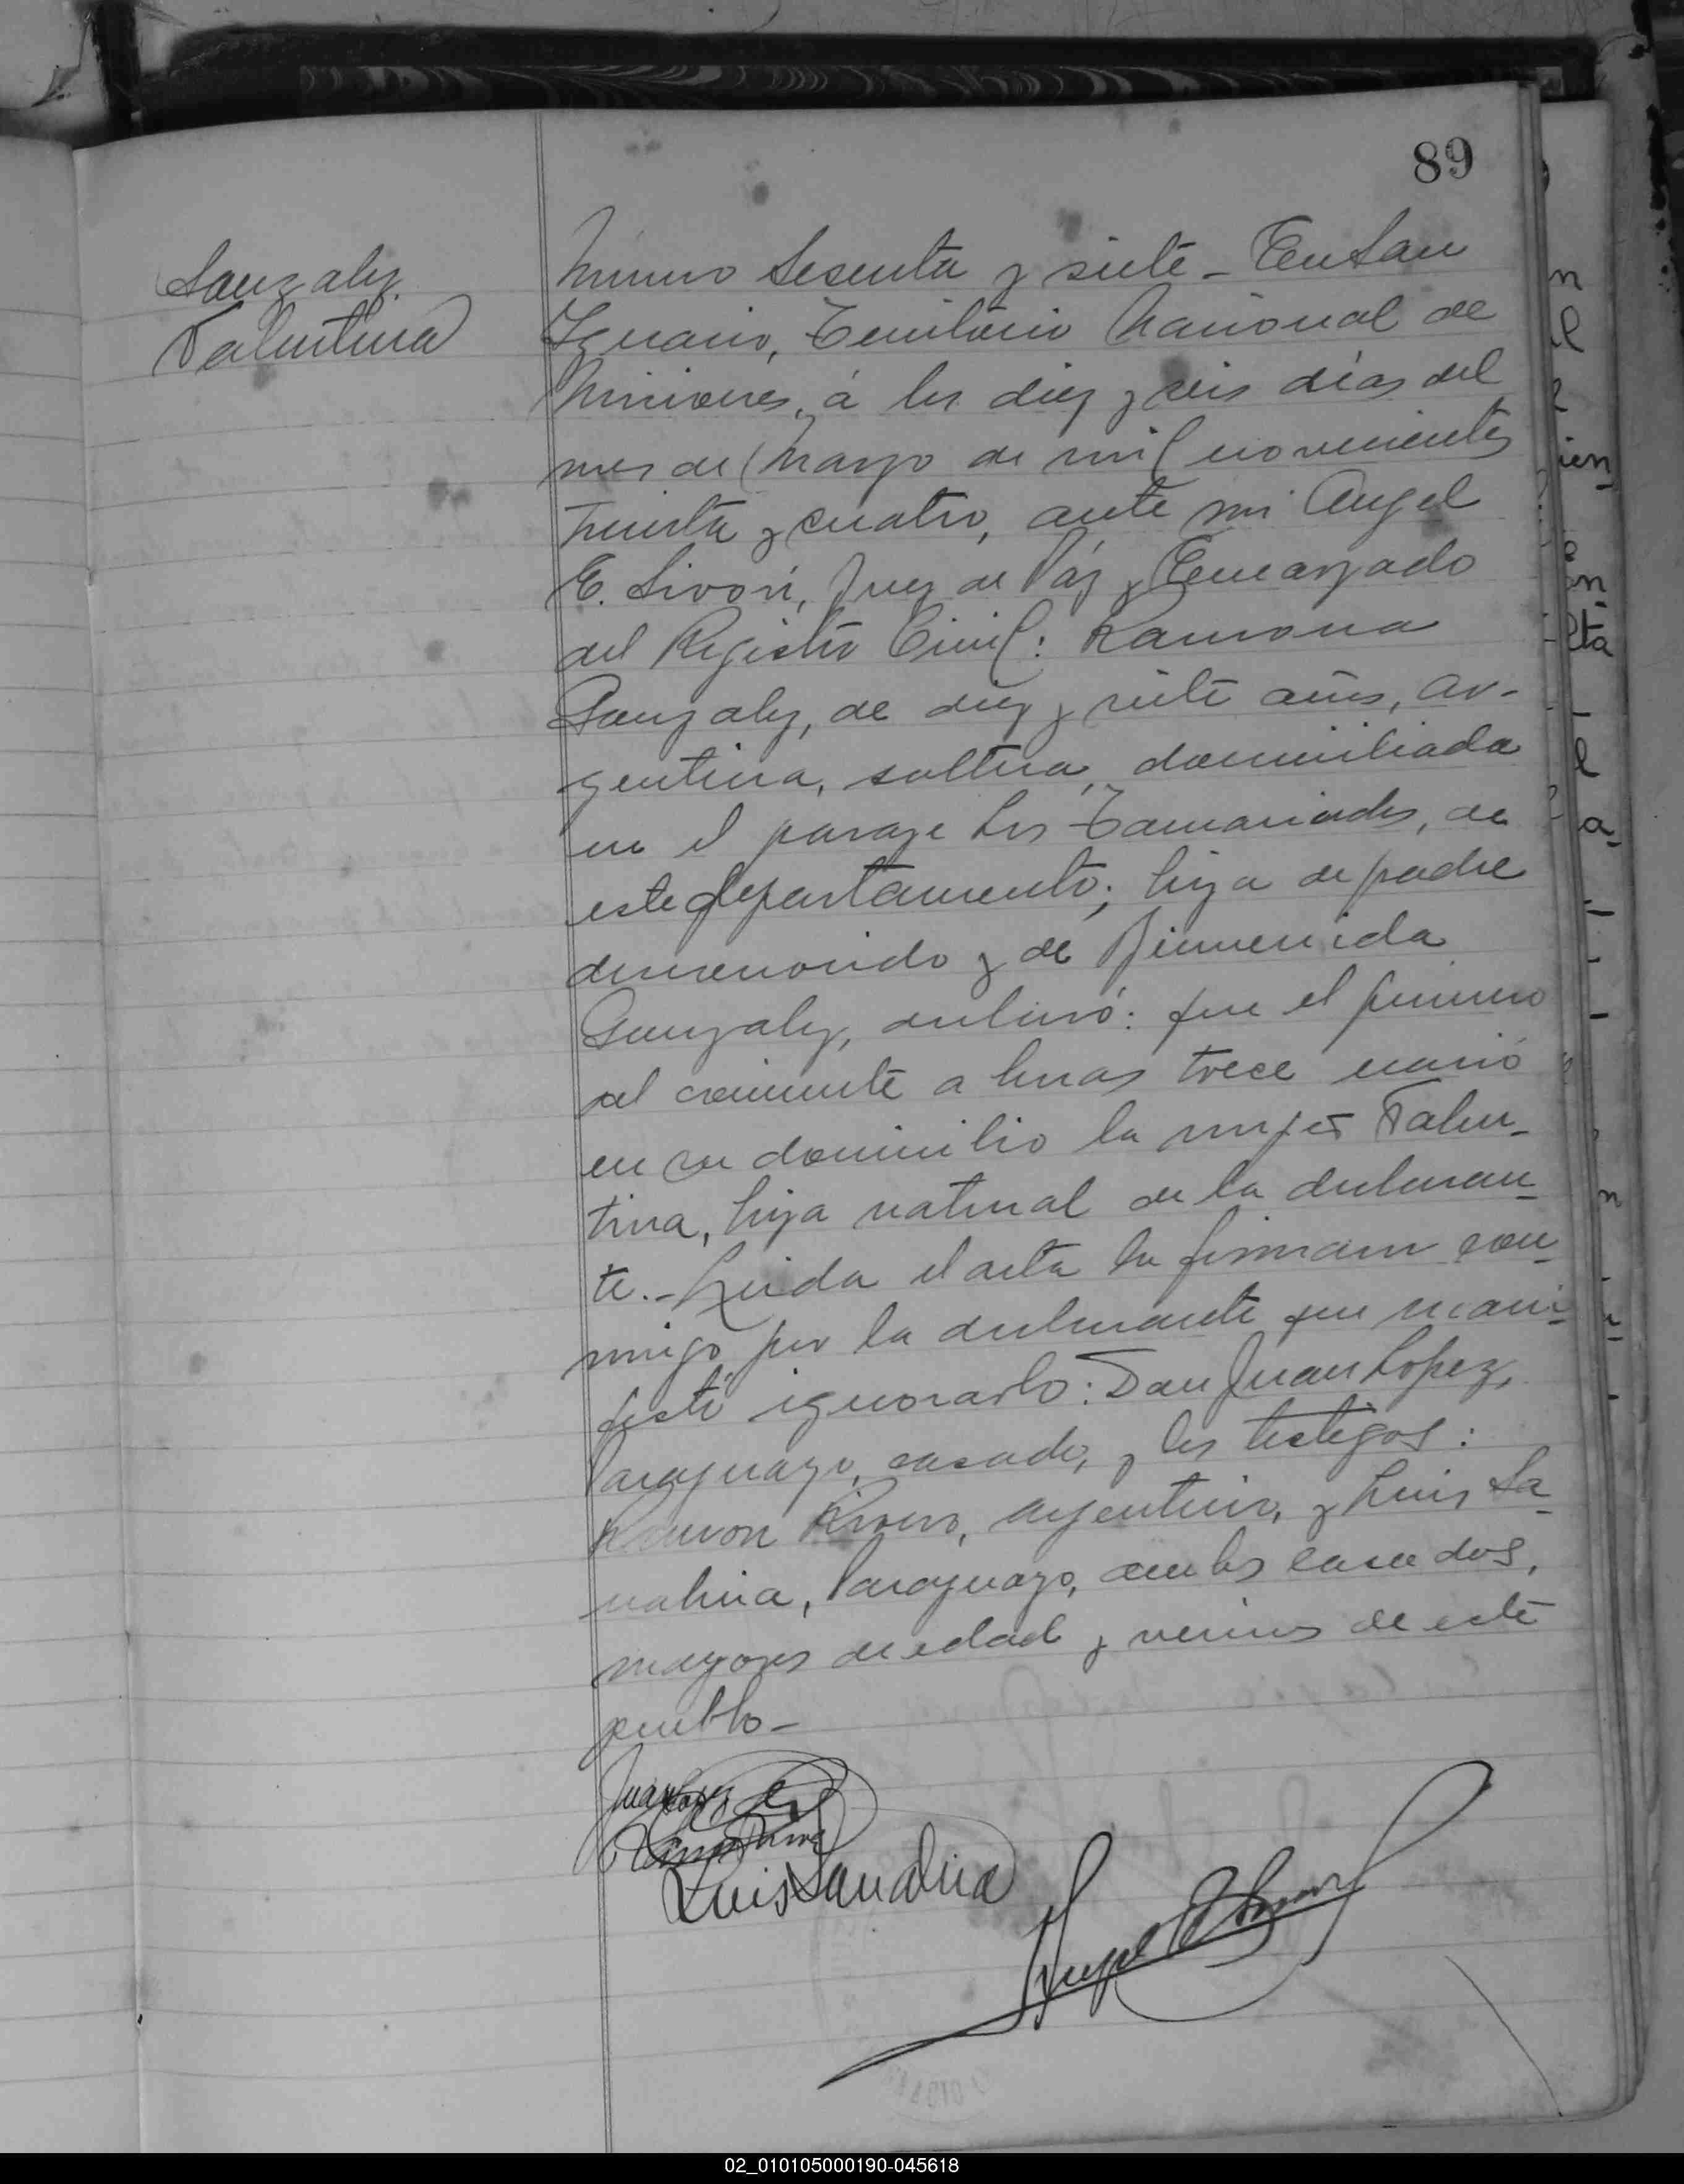 89
Gonzalez
Valentina
Número Sesenta y siete - En San
Ignacio, Territorio Nacional de
Misiones, á los diez y seis días del
mes de Marzo de mil novecientos
treinta y cuatro, ante mi Angel
E. Sivori, Juez de Páz y Encargado
del Registro Civil: Ramona
Gonzalez, de diez y siete años, ar-
gentina, soltera, domiciliada
en el paraje Los Tamarindos, de
este departamento; hija de padre
desconocido y de Bienvenida
Gonzalez, declaró: que el primero
del corriente a horas trece nació
en su domicilio la mujer Valen-
tina, hija natural de la declaran-
te.- Leida el acta la firman con-
migo por la declarante que mani-
festó ignorarlo: Don Juan Lopez,
Paraguayo, casado, y los testigos:
Ramon Rivero, argentino, y Luis Sa-
nabria, Paraguayo, ambos casados,
mayores de edad y vecinos de este
pueblo-
Juan Lopez
Luis Sanabria
02_010105000190-045618